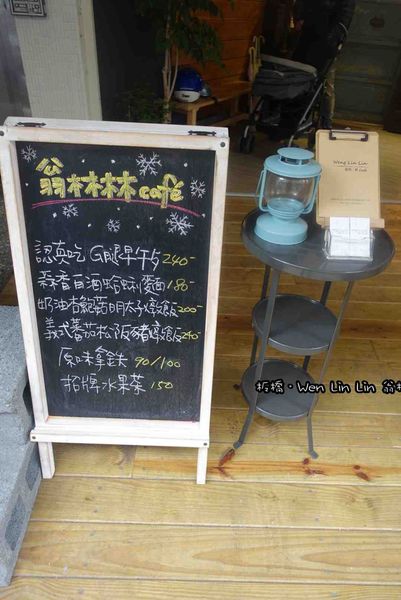 翁林林林 café
認真吃 G腿早午ㄘ 240-
蒜香白酒蛤蜊麵 180-
奶油鮭魚明太子燉飯 200-
義式蕃茄松阪豬燉飯 240-
原味拿鐵 90/100
招牌水果茶 150
Weng Lin Lin
板橋·Wen Lin Lin 翁